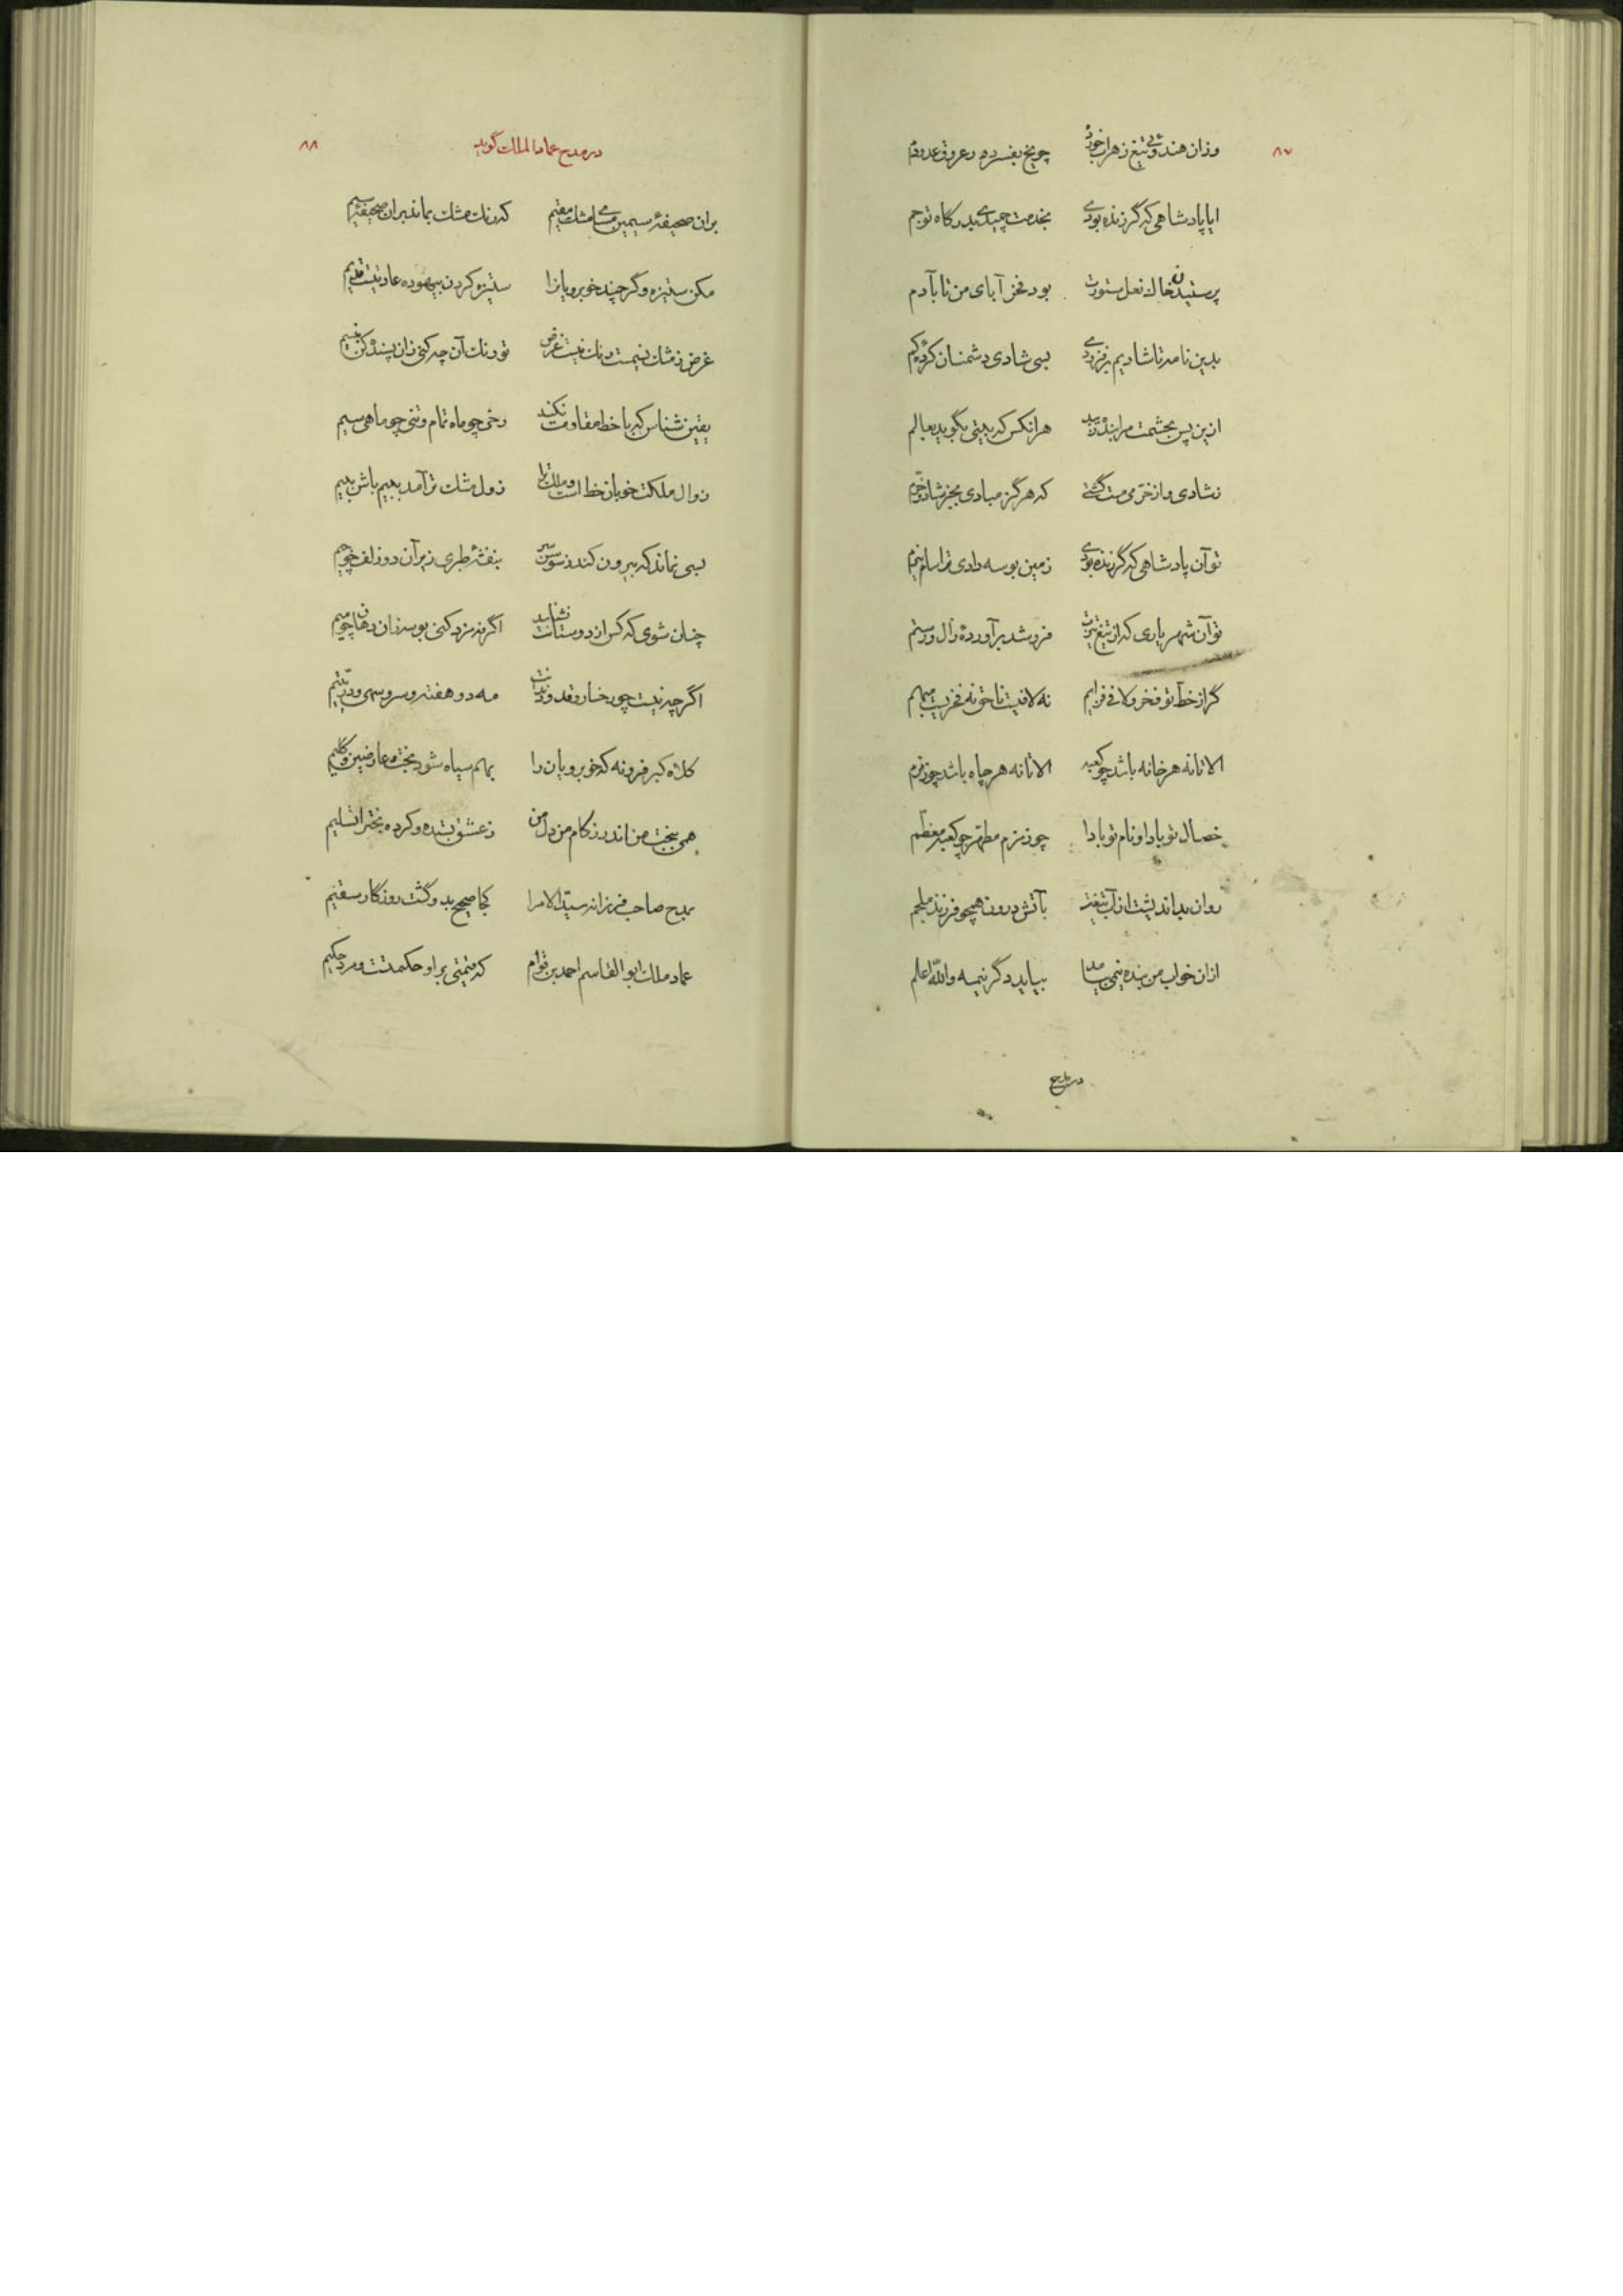 ۸۷
وزان هندوی تیغ زهراب خورده چو یخ بفسرده در عروق عدو دم
ایا پادشاهی که گر زنده بودی بخدمت چمیدی بدرگاه تو جم
پرستیدن خاک نعل ستورت بود فخر آبای من تا بآدم
بدین نامه تا شادیم برفزودی بسی شادی دشمنان کرده کم
ازین پس بحشمت مرا بنده زیبد هرانکس که بیتی بگوید بعالم
ز شادی و از خرمی مست گشتی که هرگز مبادی بجز شاد و خرم
تو آن پادشاهی که گر زنده بودی زمین بوسه دادی ترا سام نیرم
تو آن شهریاری که از تیغ تیزت فرو شد برآوردهٔ زال و رستم
گر از خط تو فخر و لاف فزایم نه لافیست ناحق نه فخریست مبهم
الا تا نه هر خانه باشد چو کعبه الا تا نه هر چاه باشد چو زمزم
خصال تو بادا و نام تو بادا چو زمزم مطهر چو کعبه معظم
روان بداندیشت از آب تیغت بآتش درون همچو فرزند ملجم
ازان خواب من بنده نیمی بیامد بیاید دگر نیمه والله اعلم
در مدح
۸۸
در مدح عماد الملک گوید
بران صحیفهٔ سیمین مسای مشک مقیم که رنگ مشک بماند بران صحیفهٔ سیم
مکن ستیزه و گر چند خوبرویانرا ستیزه کردن بیهوده عادتیست قدیم
غرض ز مشک نسیمست رنگ نیست غرض تو رنگ آن چه کنی زان پسنده کن بنسیم
یقین شناس که با خط مقاومت نکند رخی چو ماه تمام و تنی چو ماهی سیم
زوال مملکت خوبان خط است و ملک ترا زوال مشک تر آمد ببیم باش ببیم
بسی نماند که بیرون کند ز سوسن سر بنفشهٔ طبری زیر آن دو زلف چو جیم
چنان شوی که کس از دوستانت نشناسد اگر نه مزد کنی بوسه زان دهان چو میم
اگر چه نیست چو رخسار و قد و دندانت مه دو هفته و سرو سهی و در یتیم
کلاه کبر فرو نه که خوبرویان را بمالم سیاه شود بخت و عارضین و گلیم
همی بخت من اندر ز کام من دل من ز عشق بستده و کرده بخترا تسلیم
بمدح صاحب فرزانه سید الامرا کجا صحیح بدو گشت روزگار سقیم
عماد ملک ابو القاسم احمد بن قوام که مثنی بر او حکمتست و مرد حکیم